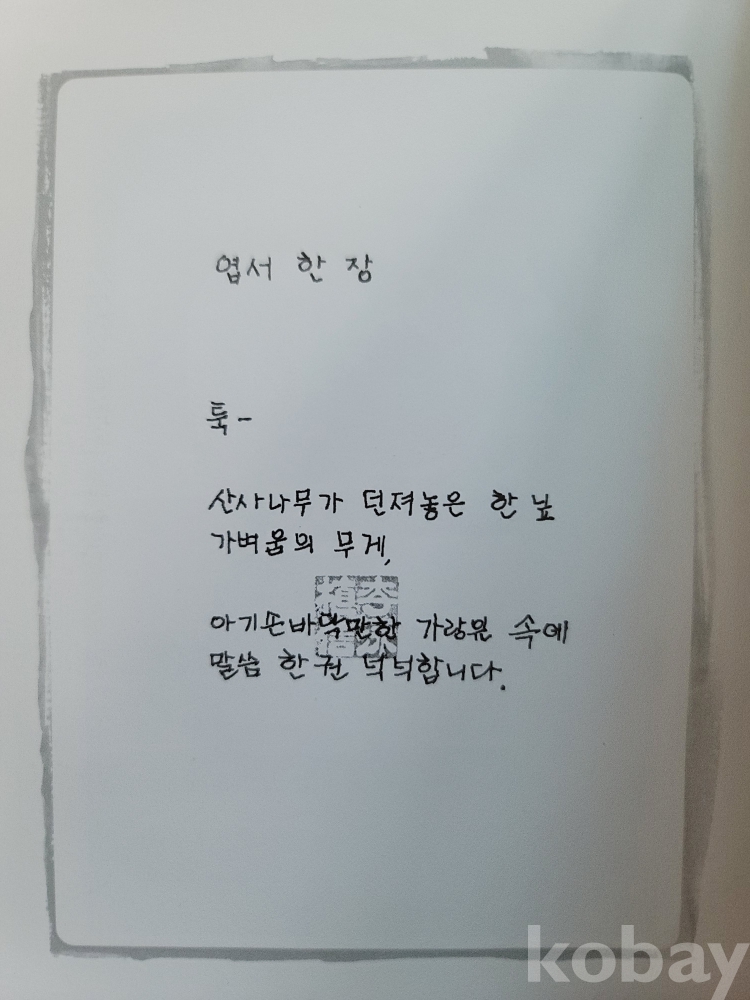 엽서 한 장
툭-
산사나무가 던져놓은 한 닢
가벼움의 무게,
아기손바닥만한 가랑잎 속에
말씀 한 권 넉넉합니다.
kobay